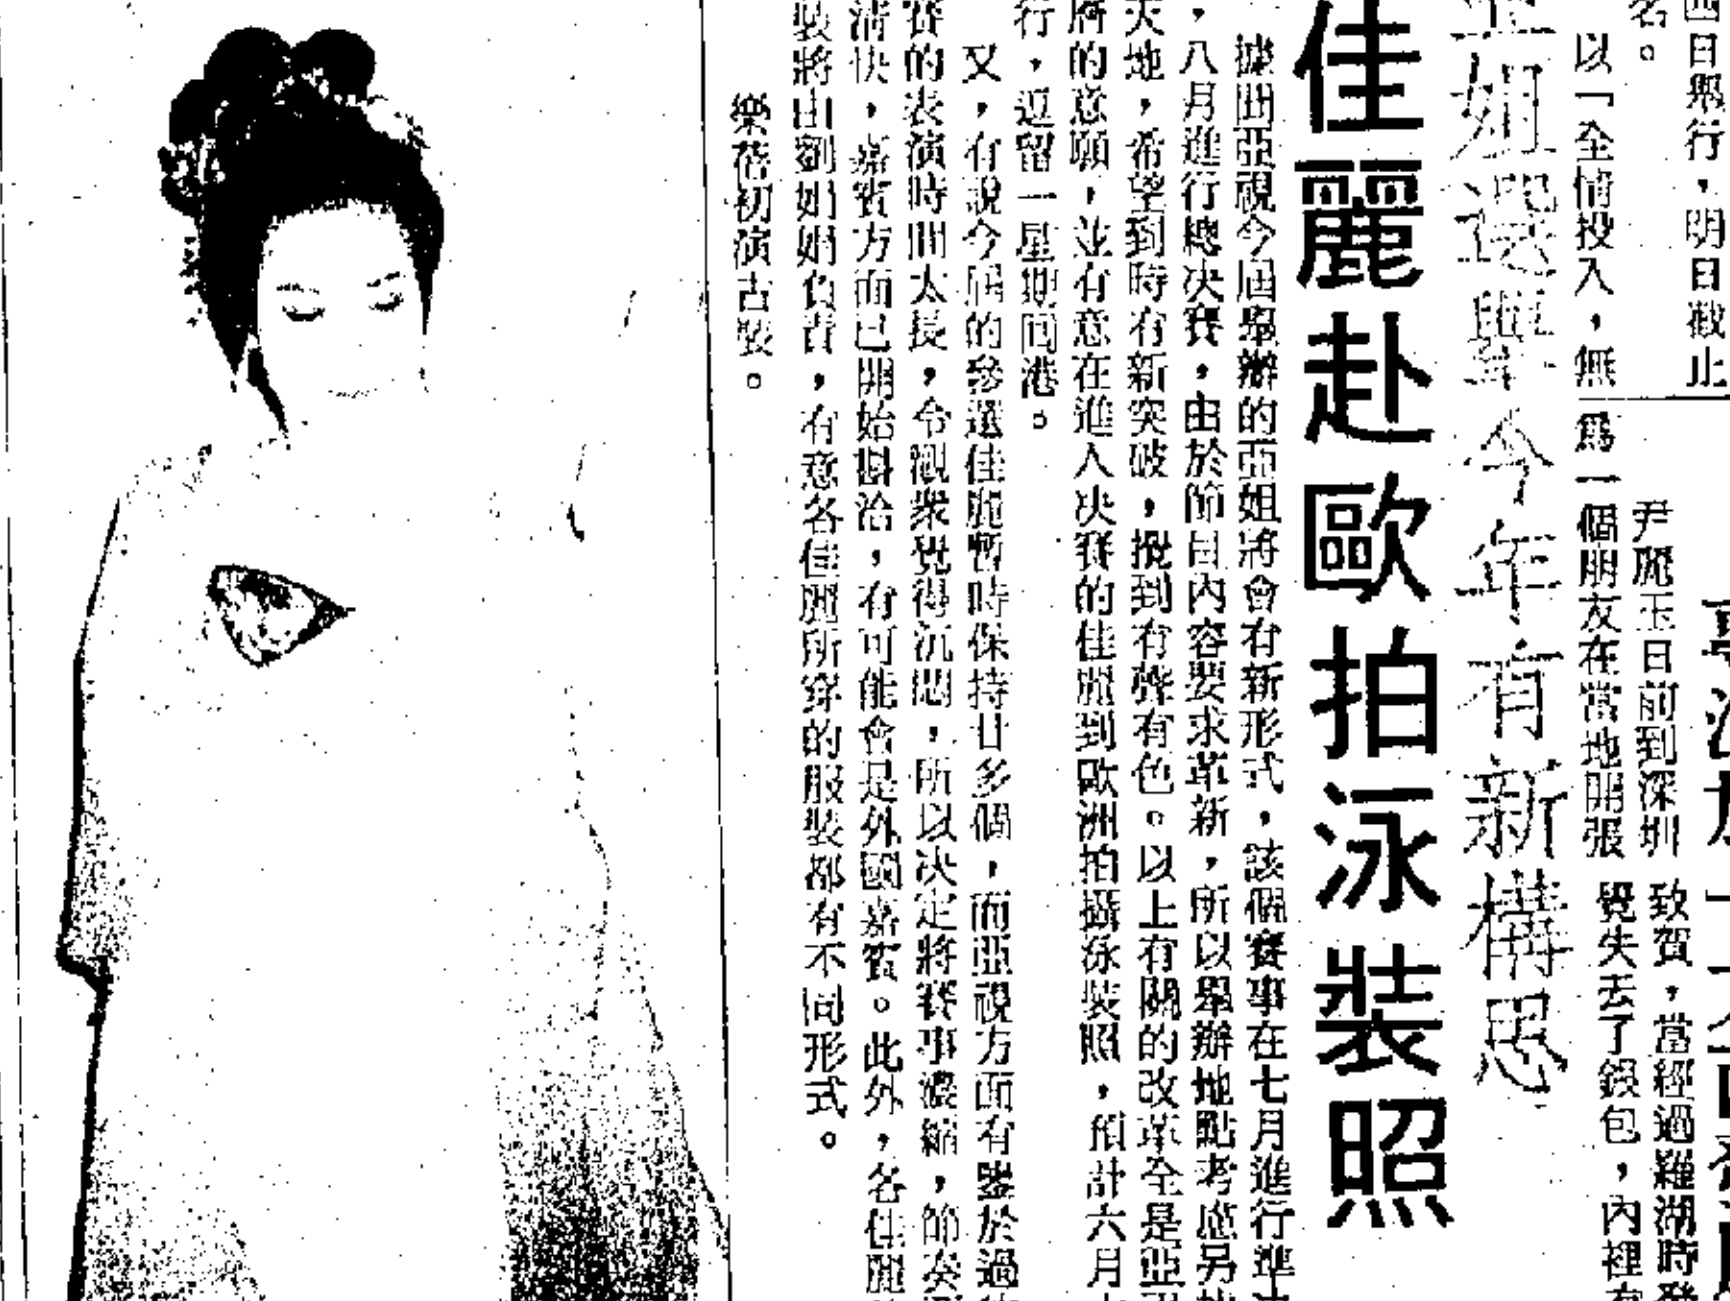 四日舉行，明日截止
名。
以「全情投入，無
尹麗玉日前到深圳
為一個朋友在當地開張
致賀，當經過羅湖時發
覺失去了銀包，內裡有
亞姐選舉今年有新構思
佳麗赴歐拍泳裝照
據聞亞視今屆舉辦的亞姐將會有新形式，該個賽事在七月進行準
，八月進行總決賽，由於節目內容要求革新，所以舉辦地點考慮另
天地，希望到時有新突破，攪到有聲有色。以上有關的改革全是亞
的意願，並有意在進入決賽的佳麗到歐洲拍攝泳裝照，預計六月
行，逗留一星期回港。
又，有說今屆的參選佳麗暫時保持廿多個，而亞視方面有鑒於過
賽的表演時間太長，令觀衆覺得沉悶，所以決定將賽事濃縮，節奏
清快，嘉賓方面已開始斟洽，有可能會是外國嘉賓。此外，各佳麗
裝將由劉娟娟負責，有意各佳麗所穿的服裝都有不同形式。
樂蓓初演古裝。